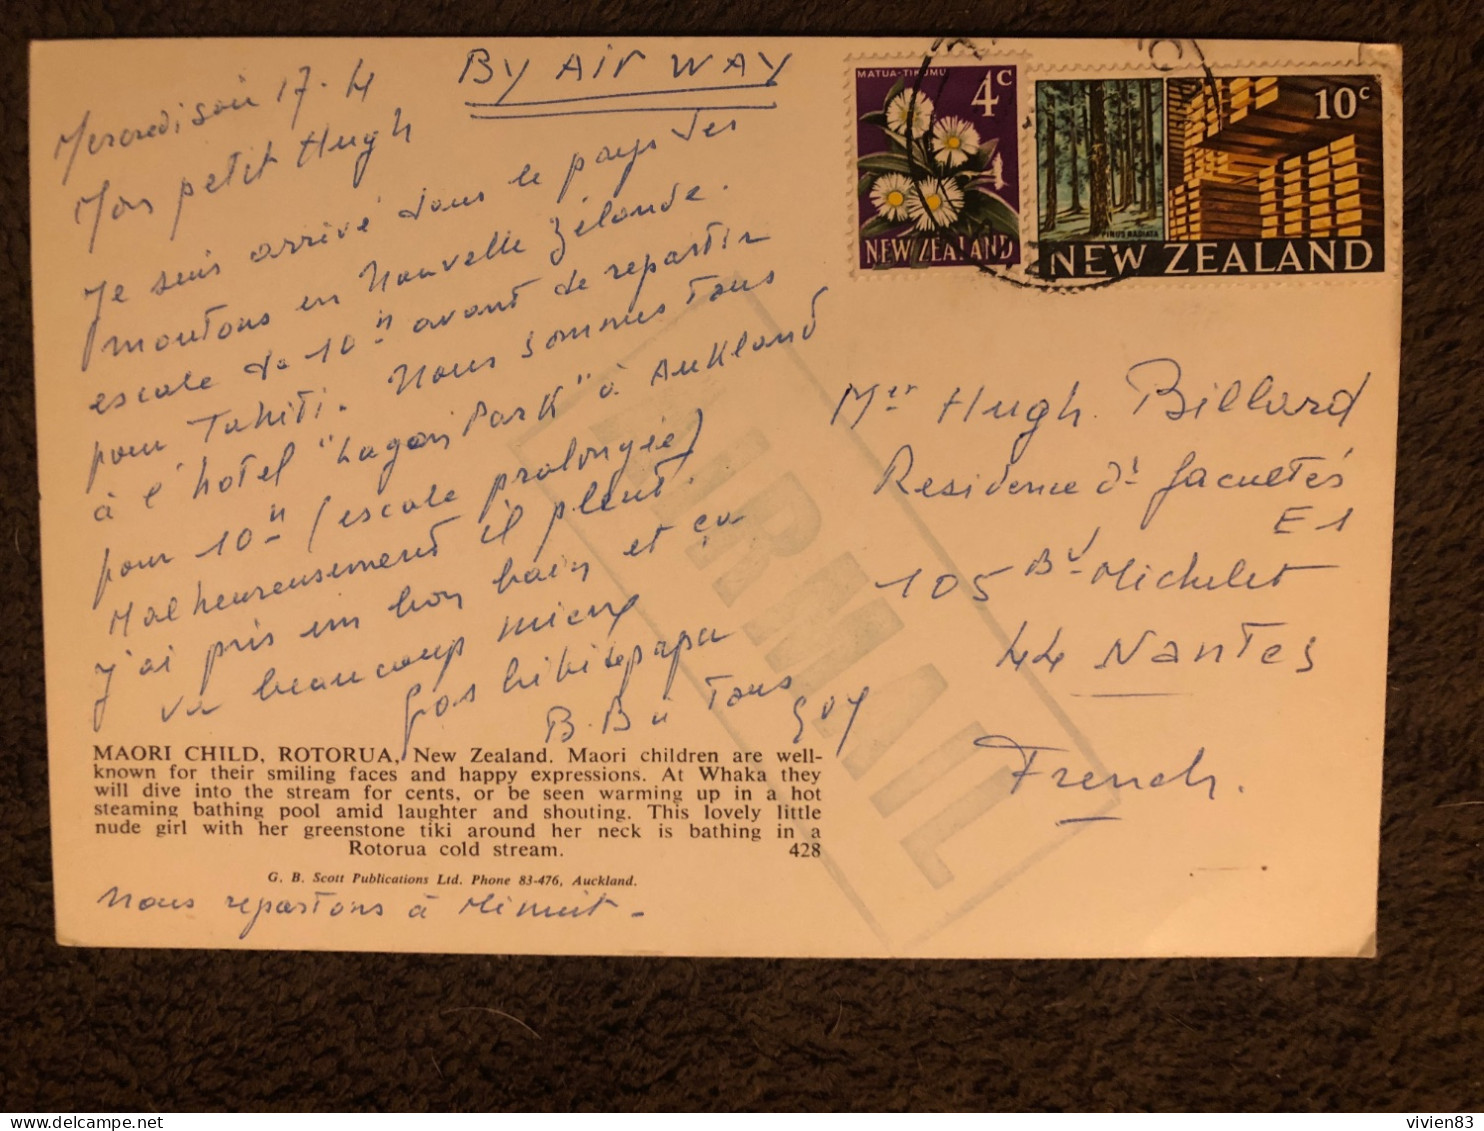 BY AIR WAY
Mercredi soir 17-4
Mon petit Hugh
Je suis arrivé dans le pays des
moutons en Nouvelle Zélande.
escale de 10 h avant de repartir
pour Tahiti. Nous sommes tous
à l'hotel "Logan Park" à Aukland
pour 10 h (escale prolongée)
Malheureusement il pleut.
j'ai pris un bon bain et ça
va beaucoup mieux
Gros bibi de papa
B. B à Tous
Guy
MAORI CHILD, ROTORUA, New Zealand. Maori children are well-
known for their smiling faces and happy expressions. At Whaka they
will dive into the stream for cents, or be seen warming up in a hot
steaming bathing pool amid laughter and shouting. This lovely little
nude girl with her greenstone tiki around her neck is bathing in a
Rotorua cold stream. 428
G. B. Scott Publications Ltd. Phone 83-476, Auckland.
Nous repartons à Minuit-
MATUA-TIKUMU
4c
NEW ZEALAND
10c
PINUS RADIATA
NEW ZEALAND
AIRMAIL
Mr Hugh. Billard
Residence
E1
105 Bd Michelet
44 Nantes
French.
vivien83